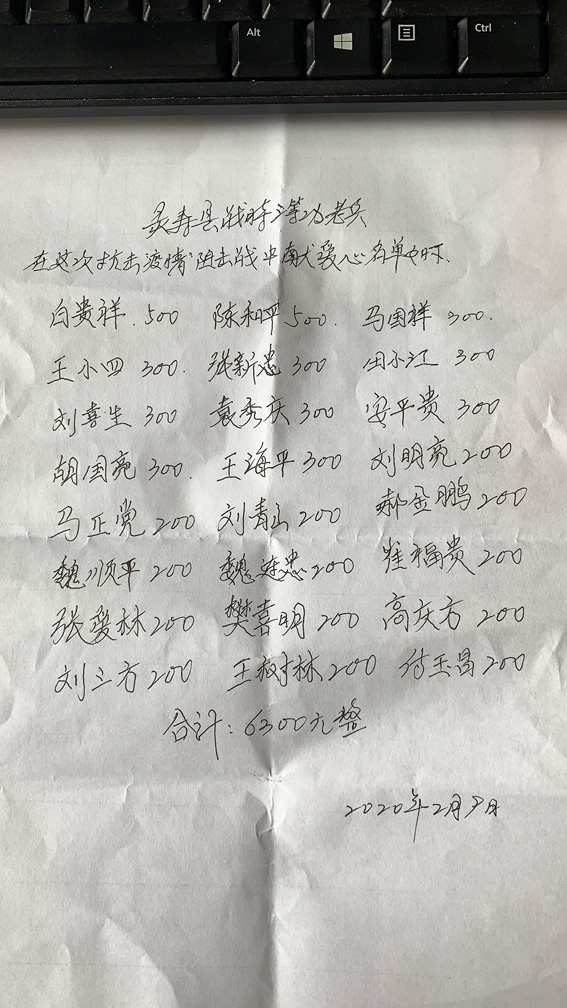 Alt
Ctrl
灵寿县战时三等功老兵
在这次抗击疫情阻击战中献爱心名单如下.
白贵祥.500 陈和平500. 马国祥300.
王小四300. 张新忠300 田小江300
刘喜生300 袁秀庆300 安平贵300
胡国亮300. 王海平300 刘明亮200
马正党200 刘青山200 郝金鹏200
魏顺平200 魏连忠200 崔福贵200
张爱林200 樊喜明200 高庆方200
刘三方200 王树林200 付玉昌200
合计:6300元整
2020年2月 日